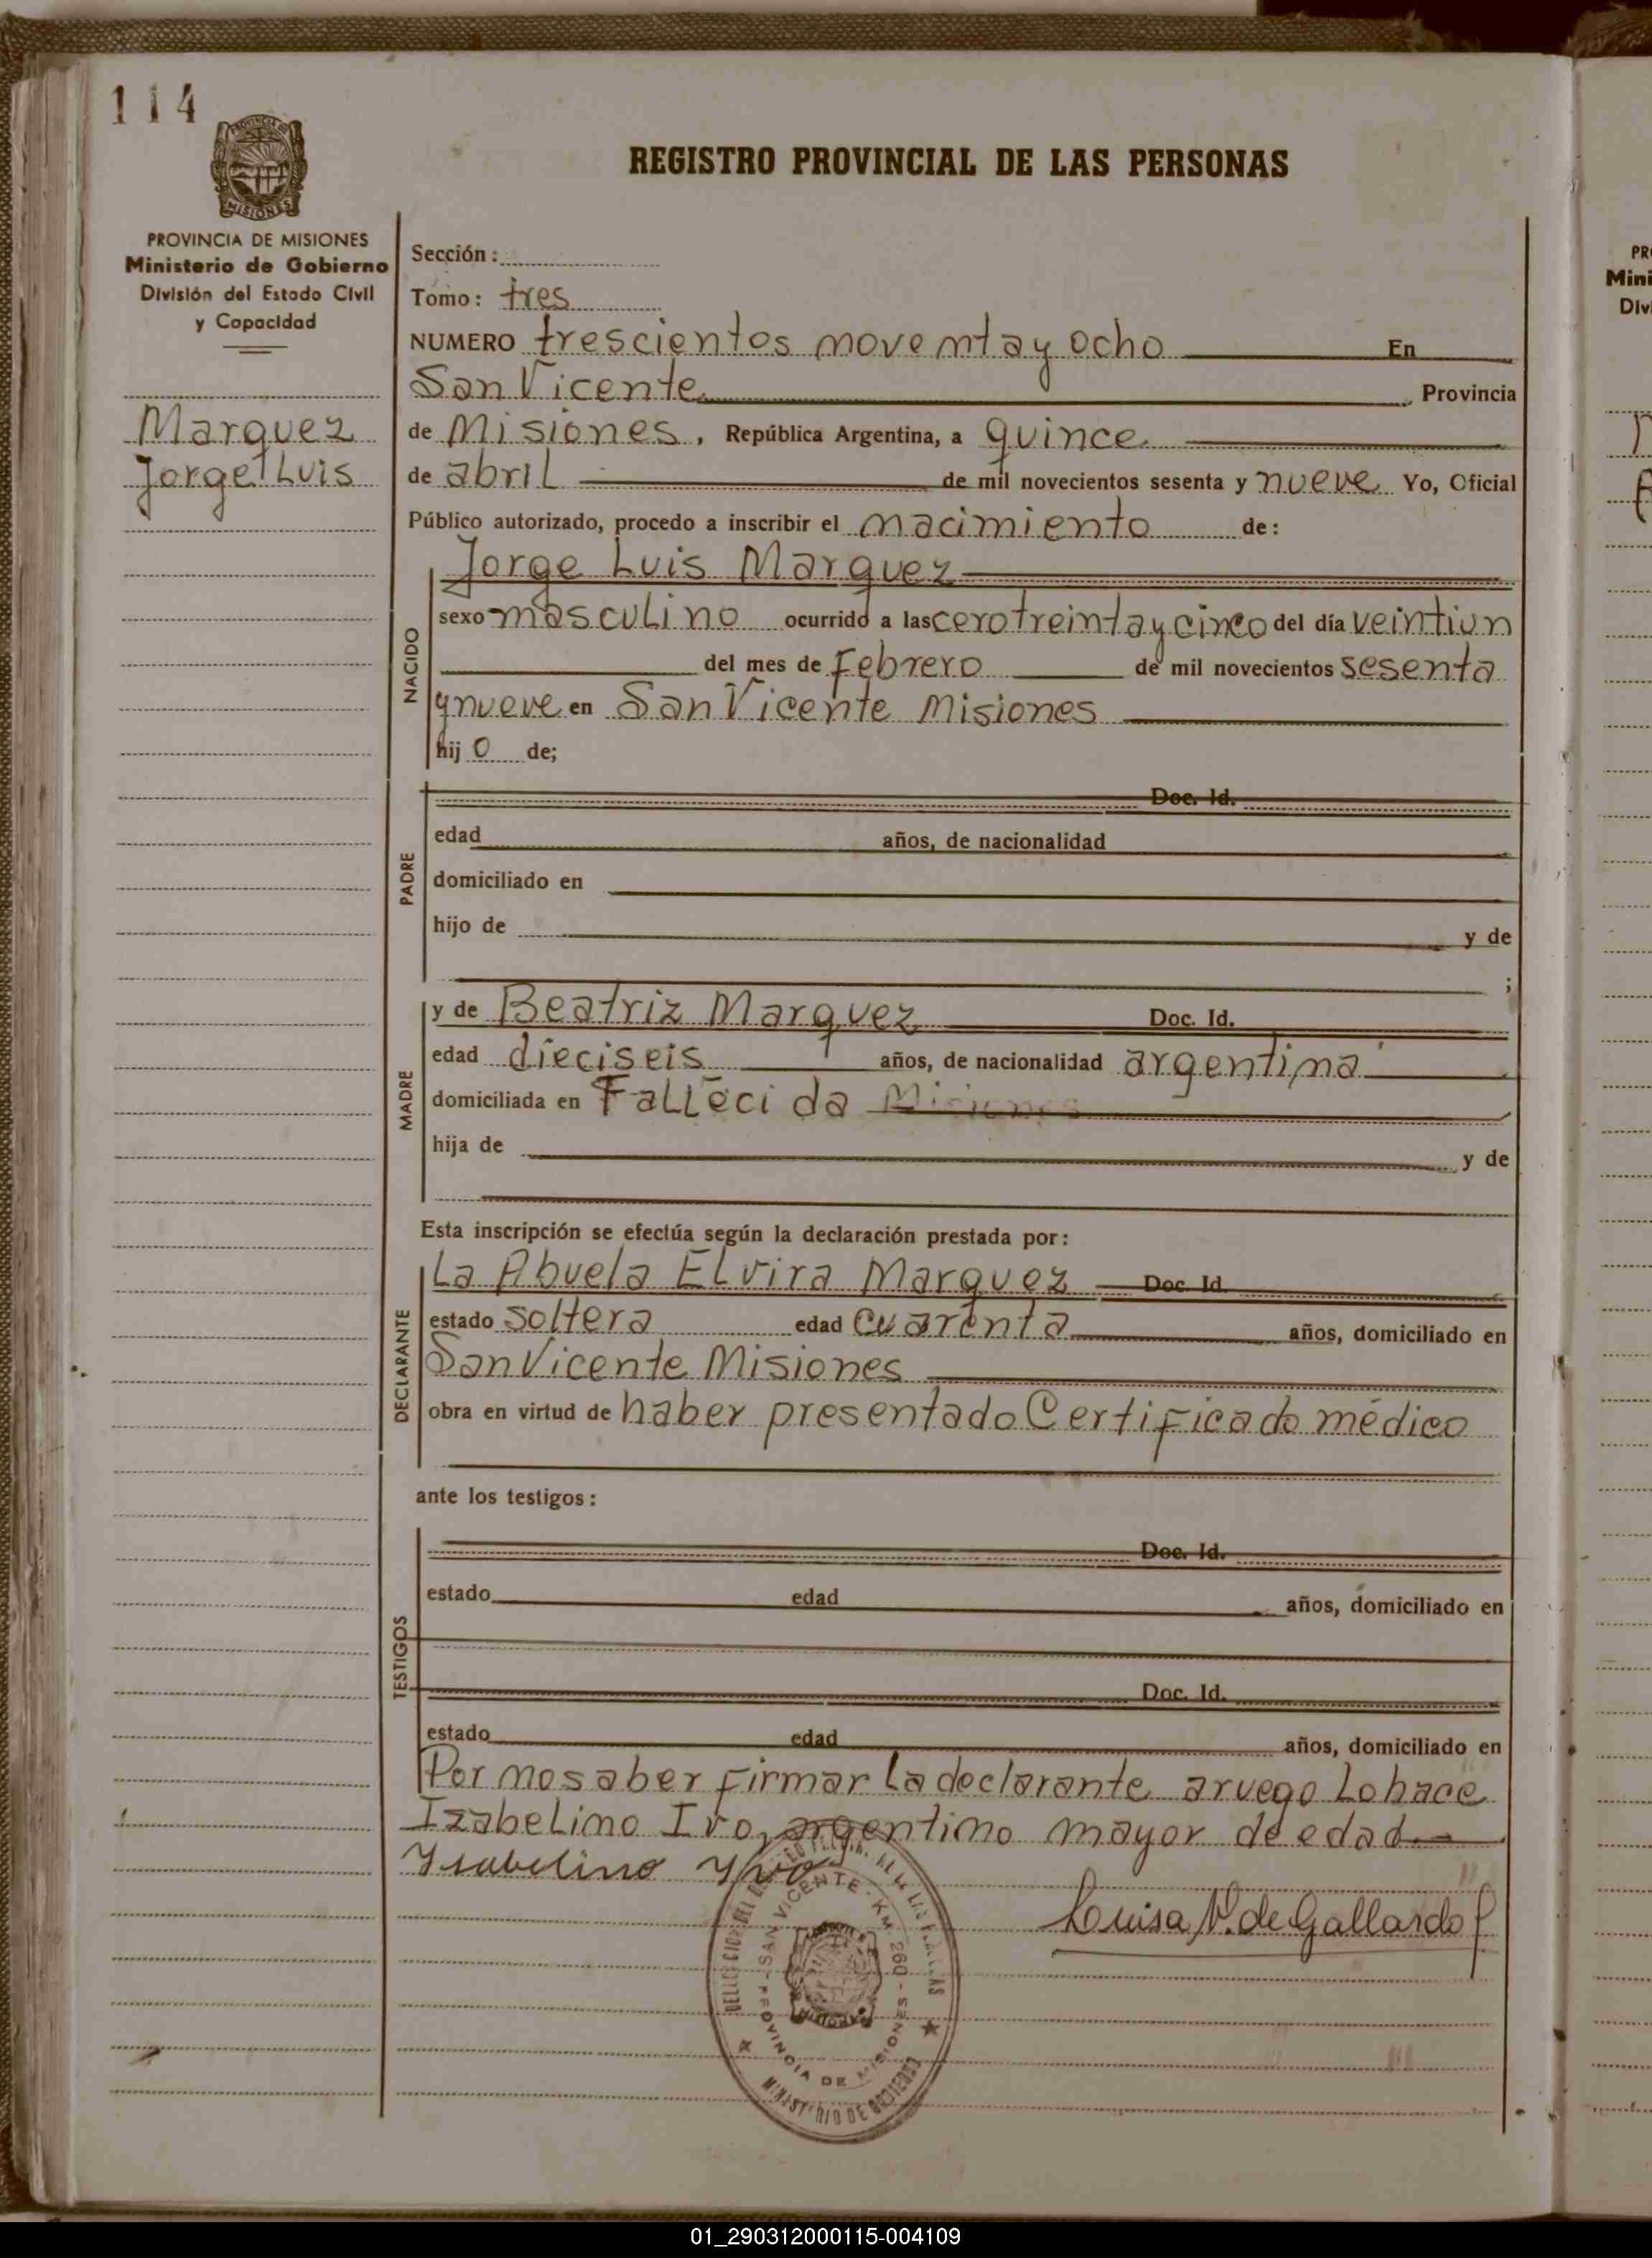 114
PROVINCIA DE MISIONES
Ministerio de Gobierno
División del Estado Civil
y Capacidad
Marquez
Jorge Luis
REGISTRO PROVINCIAL DE LAS PERSONAS
Sección:
Tomo: tres
NUMERO trescientos noventa y ocho En
San Vicente Provincia
de Misiones, República Argentina, a quince
de abril de mil novecientos sesenta y nueve Yo, Oficial
Público autorizado, procedo a inscribir el nacimiento de:
NACIDO
Jorge Luis Marquez
sexo masculino ocurrido a las cero treinta y cinco del día veintiun
del mes de Febrero de mil novecientos sesenta
y nueve en San Vicente Misiones
hij o de;
PADRE
Doc. Id.
edad años, de nacionalidad
domiciliado en
hijo de y de
;
MADRE
y de Beatriz Marquez Doc. Id.
edad dieciseis años, de nacionalidad argentina
domiciliada en Fallecida Misiones
hija de y de
Esta inscripción se efectúa según la declaración prestada por:
DECLARANTE
La Abuela Elvira Marquez Doc. Id.
estado soltera edad cuarenta años, domiciliado en
San Vicente Misiones
obra en virtud de haber presentado Certificado médico
ante los testigos:
TESTIGOS
Doc. Id.
estado edad años, domiciliado en
Doc. Id.
estado edad años, domiciliado en
Por no saber firmar la declarante a ruego lo hace
Izabelino Ivo, argentino mayor de edad.
Ysabelino Yvo
Luisa V. de Gallardo
SAN VICENTE - KM. 260 -
PROVINCIA DE MISIONES
MINISTERIO DE GOBIERNO
PR
Mini
Div
01_290312000115-004109